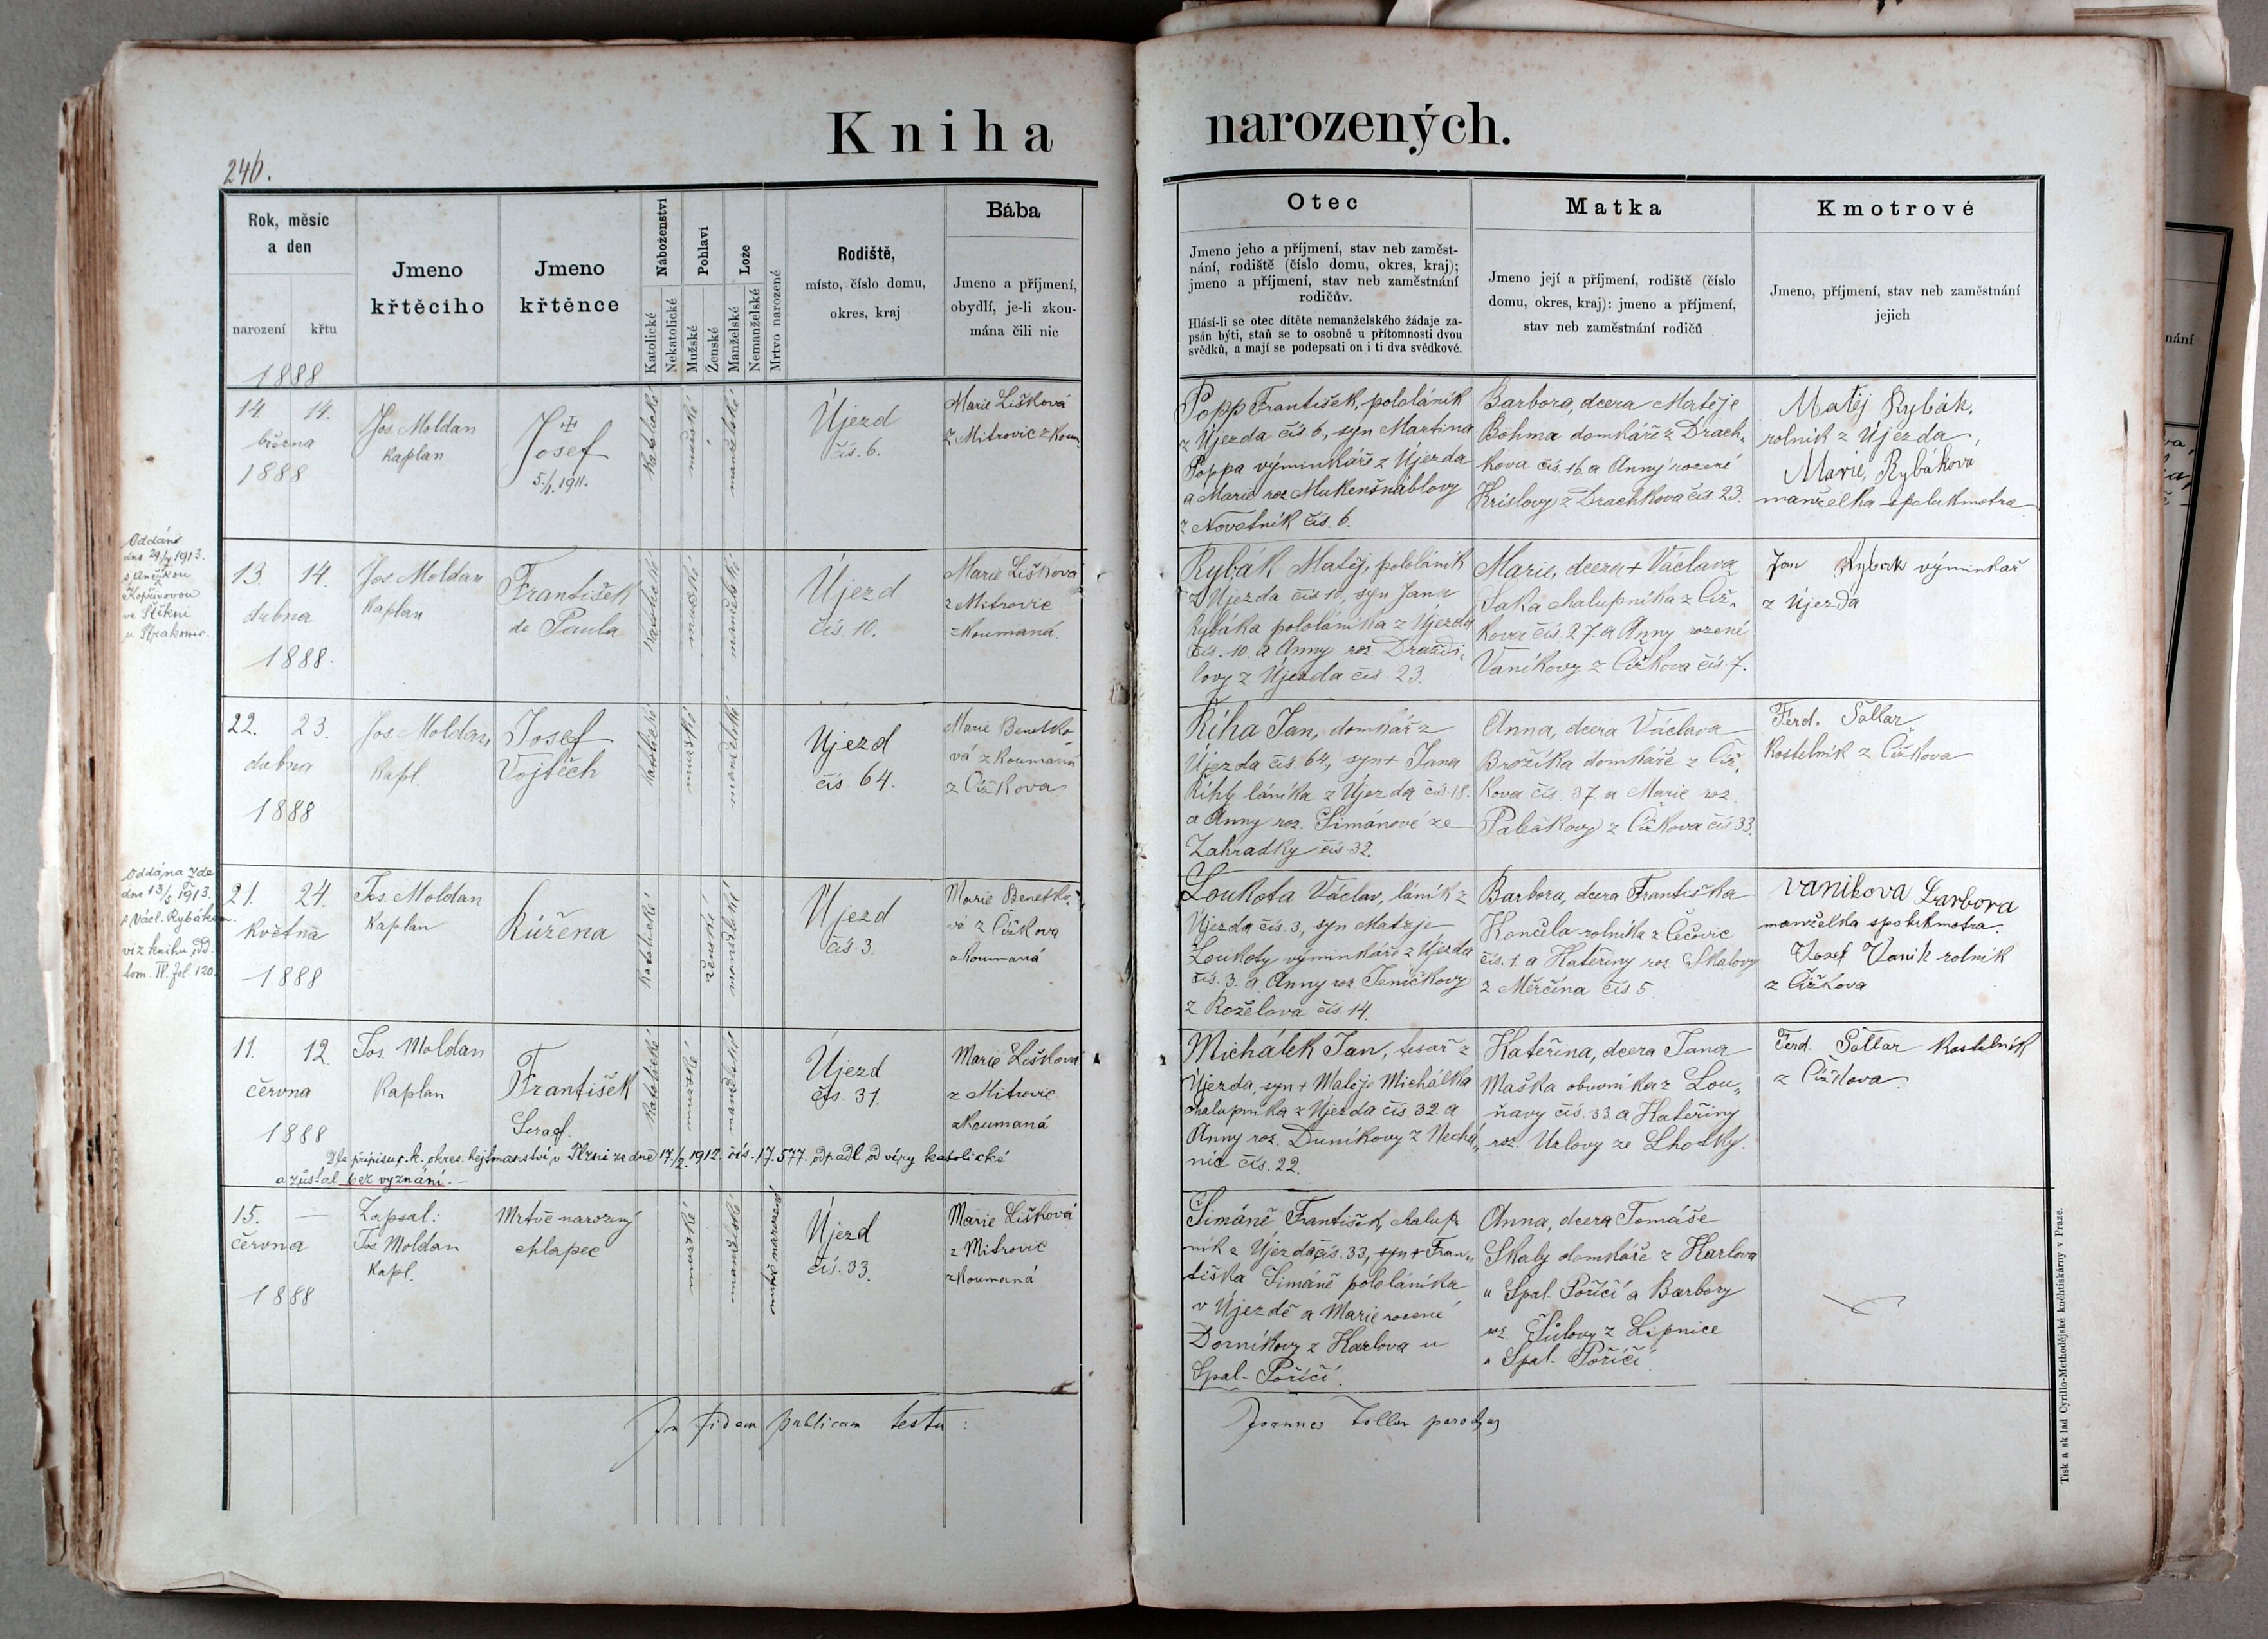 Kniha narozených.
246.
Rok, měsíc
a den
narození křtu
1888
Jmeno
křtěcího
Jmeno
křtěnce
Náboženství
Katolické
Nekatolické
Pohlaví
Mužské
Ženské
Lože
Manželské
Nemanželské
Mrtvo narozené
Rodiště,
místo, číslo domu,
okres, kraj
Bába
Jmeno a příjmení,
obydlí, je-li zkou-
mána čili nic
Otec
Jmeno jeho a příjmení, stav neb zaměst-
nání, rodiště (číslo domu, okres, kraj);
jmeno a příjmení, stav neb zaměstnání
rodičův.
Hlásí-li se otec dítěte nemanželského žádaje za-
psán býti, staň se to osobně u přítomnosti dvou
svědků, a mají se podepsati on i ti dva svědkové.
Matka
Jmeno její a příjmení, rodiště (číslo
domu, okres, kraj): jmeno a příjmení,
stav neb zaměstnání rodičů
Kmotrové
Jmeno, příjmení, stav neb zaměstnání
jejich
14. 14.
března
1888
Jos. Moldan
kaplan
Josef
5/1. 1911.
katolické
mužské
manželské
Újezd
čís. 6.
Marie Lišková
z Mitrovic zkoum.
Popp František, pololáník
z Újezda čís 6, syn Martina
Poppa výminkáře z Újezda
a Marie roz.
z čís. 6.
Barbora, dcera Matěje
Böhma domkáře z Drach-
kova čís. 16 a Anny rozené
z Drachkova čís 23.
Matěj Rybák,
rolník z Újezda,
Marie Rybákova
manželka spolukmotra
Oddán
dne 1913.
s Anežkou
Kopřivovou
ve Štěkni
u Strakonic.
13. 14.
dubna
1888.
Jos Moldan
kaplan
František
de Paula
katolické
mužské
manželské
Újezd
čís. 10.
Marie Lišková
z Mitrovic
zkoumaná.
Rybák Matěj, pololáník
z Újezda čís 10, syn Jana
Rybáka pololáníka z Újezda
čís. 10. a Anny roz. Draždi-
lovy z Újezda čís. 23.
Marie, dcera + Václava
Saka chalupníka z Číž-
kova čís. 27. a Anny rozené
Vaníkovy z Čížkova čís 7.
Jan Rybák výminkař
z Újezda
22. 23.
dubna
1888
Jos. Moldan,
kapl.
Josef
Vojtěch
katolické
mužské
manželské
Újezd
čís 64.
Marie Benetko-
vá zkoumaná
z Čížkova
Říha Jan, domkář z
Újezda čís. 64, syn + Jana
Říhy láníka z Újezda čís. 18.
a Anny roz. Simánové ze
Zahradky čís. 32.
Anna, dcera Václava
Brožíka domkáře z Číž-
kova čís. 37 a Marie roz.
Palečkovy z Čížkova čís 33.
Ferd. Sallar
kostelník z Čížkova
Oddána zde
dne 13/5 1913
s Václ. Rybákem.
viz knihu odd.
tom. IV. fol. 120.
21. 24.
května
1888
Jos. Moldan
kaplan
Růžena
katolické
ženské
manželské
Újezd
čís 3
Marie Benetko-
vá z Čížkova
zkoumaná
Loukota Václav, láník z
Újezda čís. 3, syn Matěje
Loukoty výminkáře z Újezda
čís. 3. a Anny roz. Jeničkovy
z Roželova čís. 14.
Barbora, dcera Františka
Končela rolníka z Čečovic
čís. 1 a Kateřiny roz. Skalovy
z Měrčína čís. 5.
vanikova Barbora
manželka spolukmotra.
Josef Vaník rolník
z Čížkova
11. 12.
června
1888
Jos. Moldan
kaplan
František
Seraf.
katolické
mužské
manželské
Újezd
čís. 31.
Marie Lišková
z Mitrovic
zkoumaná
Michálek Jan, tesař z
Újezda, syn + Matěje Michálka
chalupníka z Újezda čís. 32. a
Anny roz. Duníkovy z Nechá-
nic čís. 22.
Kateřina, dcera Jana
Maška obuvníka z Lou-
ňavy čís. 33. a Kateřiny
roz. Urlovy ze Lhotky.
Ferd. Sallar kostelník
z Čížkova.
Dle přípisu c. k. okres. hejtmanství v Plzni ze dne 17/2. 1912. čís. 17.577. odpadl od víry katolické
a zůstal bez vyznání. —
15. —
června
1888
Zapsal:
Jos. Moldan
kapl.
Mrtvě narozný
chlapec
mužské
manželské
mrtvě narozené
Újezd
čís. 33.
Marie Lišková
z Mitrovic
zkoumaná
Simáně František, chalup-
ník z Újezda čís. 33, syn + Fran-
tiška Simáně pololáníka
v Újezdě a Marie rozené
Dorníkovy z Karlova u
Spal. Poříčí.
Anna, dcera Tomáše
Skaly domkáře z Karlova
u Spal. Poříčí a Barbory
roz. z Lipnice
u Spal. Poříčí.
In fidem publicam testor:
Joannes Toller parochus
Tisk a sklad Cyrillo-Methodějské knihtiskárny v Praze.